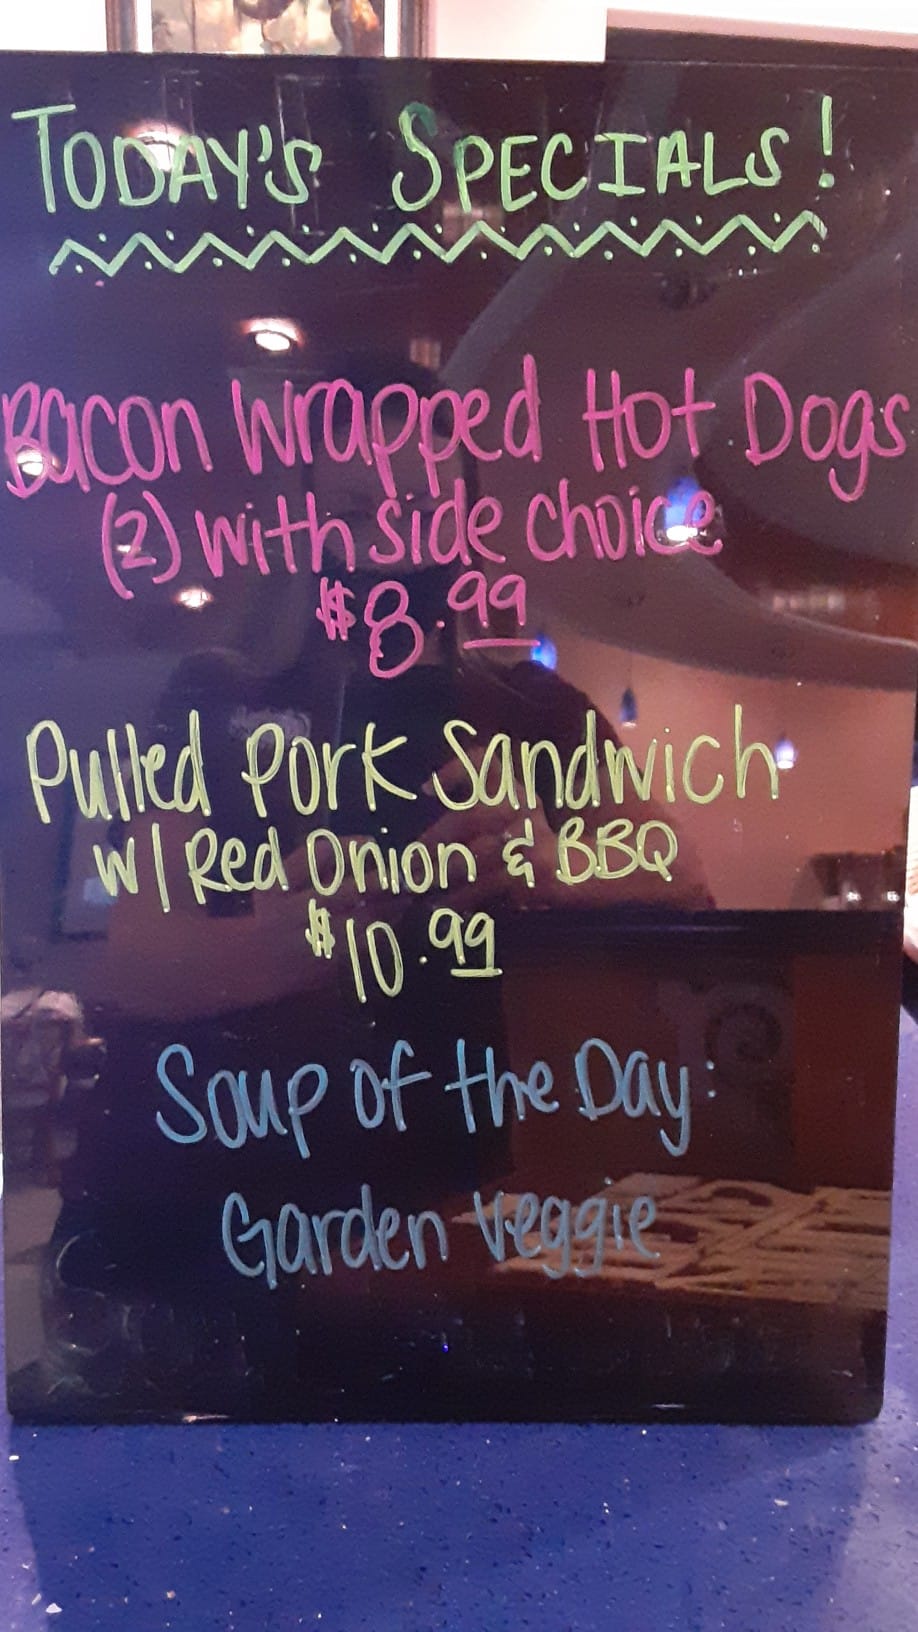 TODAY'S SPECIALS!
Bacon Wrapped Hot Dogs
(2) with side choice
$8.99
Pulled Pork Sandwich
w/ Red Onion & BBQ
$10.99
Soup of the Day:
Garden Veggie